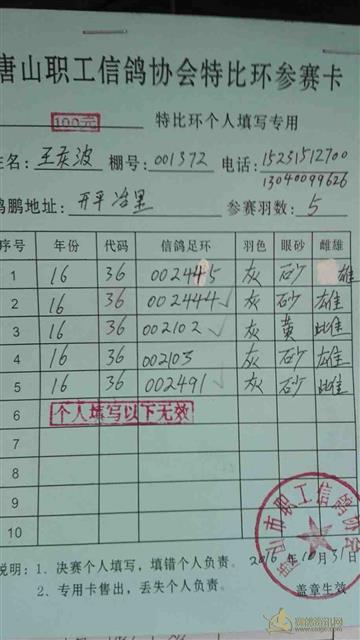 唐山职工信鸽协会特比环参赛卡
100元 特比环个人填写专用
姓名: 王 波 棚号: 001372 电话: 15231512700
13040099626
鸽鹏地址: 开平 冶里 参赛羽数: 5
序号 年份 代码 信鸽足环 羽色 眼砂 雌雄
1 16 36 002445 灰 砂 雄
2 16 36 002444 灰 砂 雄
3 16 36 002102 灰 黄 雌
4 16 36 002103 灰 砂 雄
5 16 36 002491 灰 砂 雌
6 个人填写以下无效
7
8
9
10
山市职工信鸽协会
2016年10月31日
说明: 1、决赛个人填写,填错个人负责。
2、专用卡售出,丢失个人负责。 盖章生效